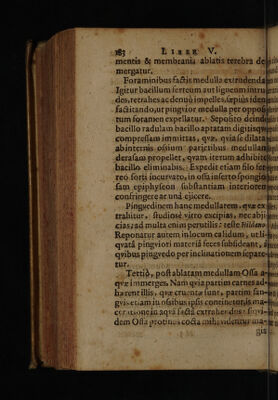 183 LIBER V.
mentis & membranis ablatis terebra de
mergatur.
Foraminibus factis medulla extrudenda
Igitur bacillum ferreum aut ligneum intru
des, retrahes ac denuò impelles, sæpius idem
factitando, ut pinguior medulla per oppos
tum foramen expellatur. Seposito dein
bacillo radulam bacillo aptatam digitisqꝫ
compressam immittas, quæ, quia se dilata
abinternis ossium parietibus medullam
derasam propellet, quam iterum adhibito
bacillo eliminabis. Expedit etiam filo fer
reo forti incurvato, in ossa inserto spongio
sam epiphyseon substantiam interiorem
confringere ac unà ejicere.
Pinguedinem hanc medullarem, quæ ex
trahitur, studiosè vitro excipias, nec abji
cias, ad multa enim perutilis: teste
Reponatur autem in locum calidum, ut li-
quata pinguiori materia feces subsideant, a
quibus pinguedo per inclinationem separe-
tur.
Tertiò, post ablatam medullam Ossa a-
quæ immerges. Nam quia partim carnes ad-
hærent illis, quæ cruentæ sunt, partim san-
guis etiam in ossibus ipsis continetur, is ma-
ceratione in aqua facta extrahendus:
dem Ossa protinus cocta mihi videntur ma-
gis